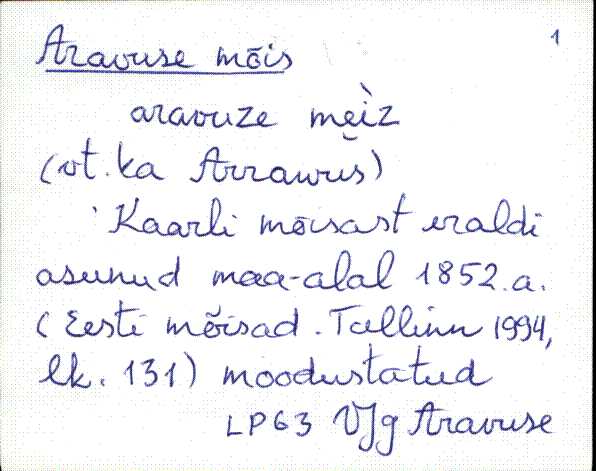 1
Aravuse mõis
aravuze mẹ̀iz
(vt. ka Arrawus)
Kaarli mõisast eraldi
asunud maa-alal 1852. a.
(Eesti mõisad. Tallinn 1994,
lk. 131) moodustatud
LP63 VJg Aravuse